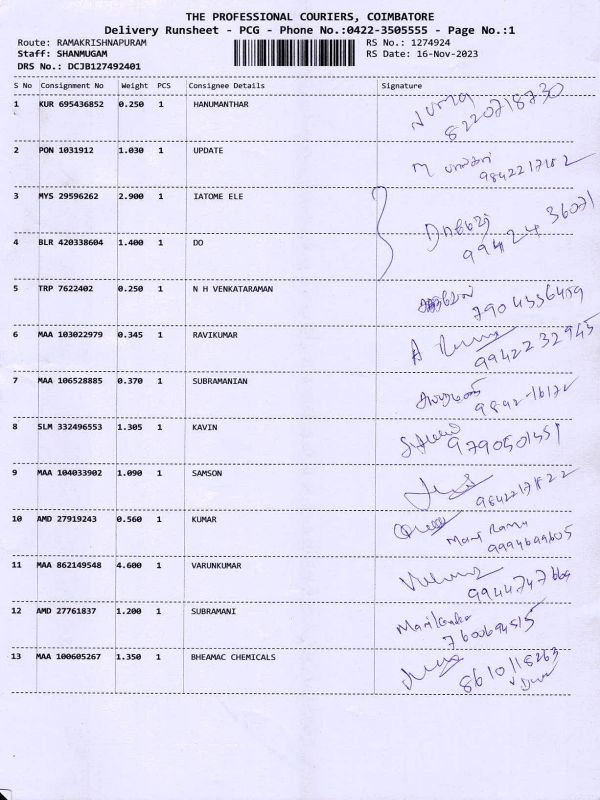 THE PROFESSIONAL COURIERS, COIMBATORE
Delivery Runsheet - PCG - Phone No.:0422-3505555 - Page No.:1
Route: RAMAKRISHNAPURAM RS No.: 1274924
Staff: SHANMUGAM RS Date: 16-Nov-2023
DRS No.: DCJB127492401
S No Consignment No Weight PCS Consignee Details Signature
1 KUR 695436852 0.250 1 HANUMANTHAR
8220718730
2 PON 1031912 1.030 1 UPDATE
3 MYS 29596262 2.900 1 IATOME ELE
4 BLR 420338604 1.400 1 DO
5 TRP 7622402 0.250 1 N H VENKATARAMAN
6 MAA 103022979 0.345 1 RAVIKUMAR
99422 32945
7 MAA 106528885 0.370 1 SUBRAMANIAN
8 SLM 332496553 1.305 1 KAVIN
9 MAA 104033902 1.090 1 SAMSON
10 AMD 27919243 0.560 1 KUMAR
9994699605
11 MAA 862149548 4.600 1 VARUNKUMAR
12 AMD 27761837 1.200 1 SUBRAMANI
13 MAA 100605267 1.350 1 BHEAMAC CHEMICALS
8610118263